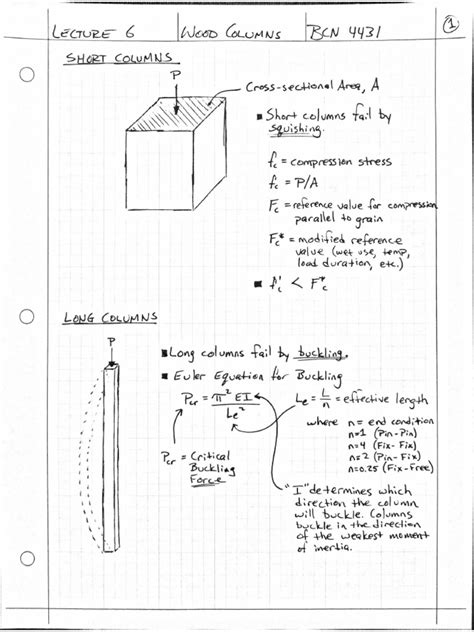 LECTURE 6 WOOD COLUMNS BCN 4431 1
SHORT COLUMNS
P
Cross-sectional Area, A
■ Short columns fail by
squishing.
fc = compression stress
fc = P/A
Fc = reference value for compression
parallel to grain
Fc* = modified reference
value (wet use, temp,
load duration, etc.)
■ fc' < Fc*
LONG COLUMNS
P
■ Long columns fail by buckling.
■ Euler Equation for Buckling
Pcr = π² EI / Le²
Le = L/n = effective length
where n = end condition
n=1 (Pin-Pin)
n=4 (Fix-Fix)
n=2 (Pin-Fix)
n=0.25 (Fix-Free)
Pcr = Critical
Buckling
Force
"I" determines which
direction the column
will buckle. Columns
buckle in the direction
of the weakest moment
of inertia.